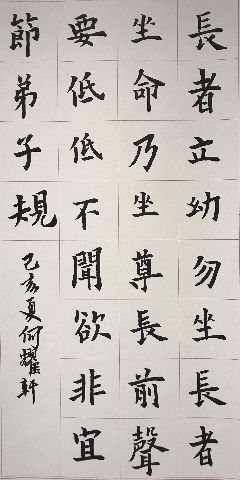 長者立幼勿坐長者
坐命乃坐尊長前聲
要低低不聞欲非宜
節弟子規
己亥夏何耀軒